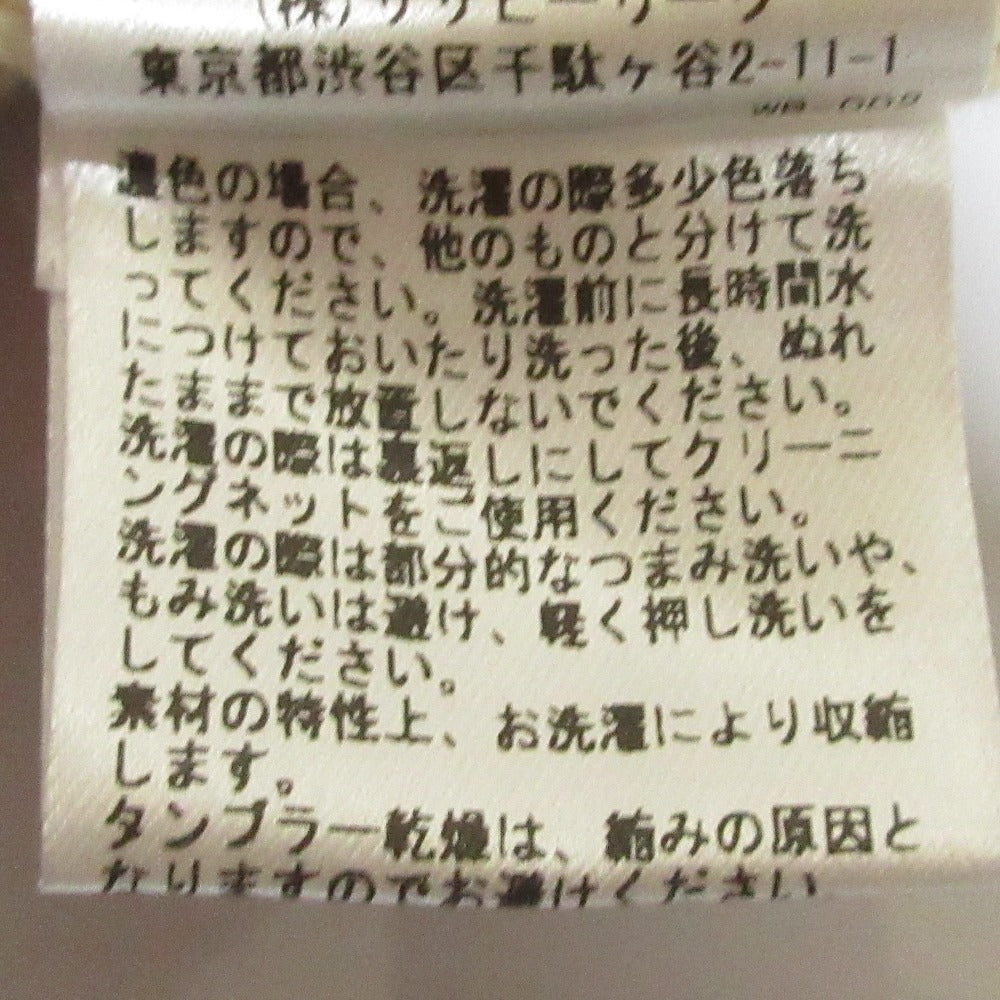 (株)サザビーリーグ
東京都渋谷区千駄ヶ谷2-11-1
濃色の場合、洗濯の際多少色落ち
しますので、他のものと分けて洗
ってください。洗濯前に長時間水
につけておいたり洗った後、ぬれ
たままで放置しないでください。
洗濯の際は裏返しにしてクリーニ
ングネットをご使用ください。
洗濯の際は部分的なつまみ洗いや、
もみ洗いは避け、軽く押し洗いを
してください。
素材の特性上、お洗濯により収縮
します。
タンブラー乾燥は、縮みの原因と
なりますのでお避けください